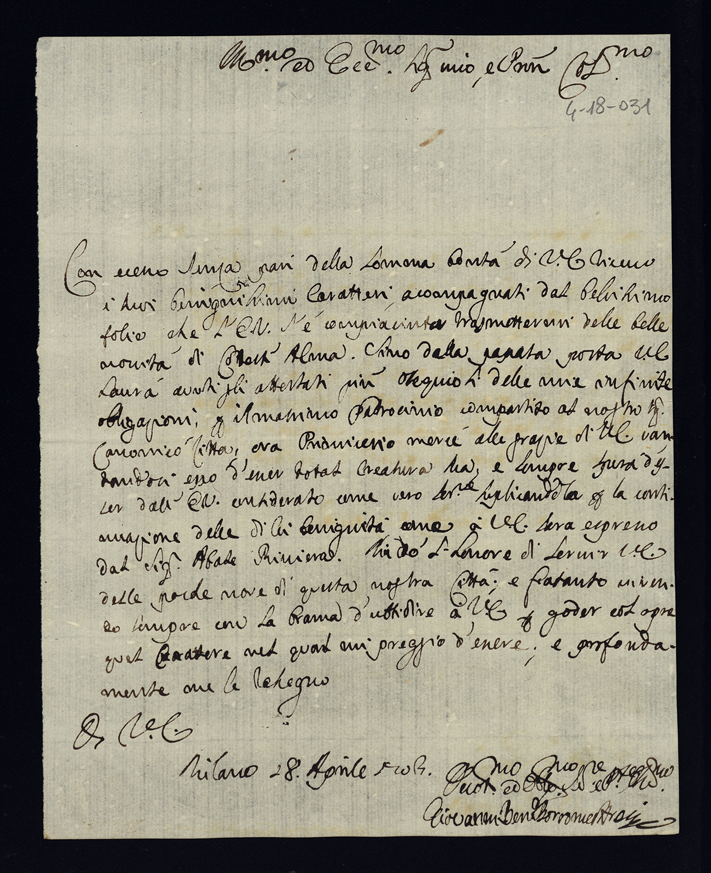 Ill.mo ed Ecc.mo Sig mio, e Pron Col.mo
4-18-031
Con eccesso senza pari della somma bontà di V.E. ricevo
i suoi benignissimi Caratteri acompagnati dal bellissimo
folio che l'E.V. s'è compiaciuta trasmettermi delle belle
novità di Alma. Sino dalla passata posta V.E.
haurà auuti gli attestati più ossequiosi delle mie infinite
obligazioni, p il massimo Patrocinio compartito al nostro Sig.
Canonico Citta, ora Primicerio mercè alle grazie di V.E. van
tandosi esso d'esser total Creatura Sua, e sempre spera d'es-
ser dall' E.V. considerato come vero Ser.re suplicandola p la conti
nuazione delle di lei benignità come à V.E. sera espresso
dal Sig. Abate Riviera. L'honore di servir V.E.
delle poche nove di questa nostra Città; e fratanto viven-
do sempre con la brama d'ubbidire à V.E. p goder col opre
quel Carattere nel qual mi preggio d'essere; e profonda-
mente me le rassegno
Di V.E.
Milano 28. Aprile
Giovanni Ben. Borromeo Arese